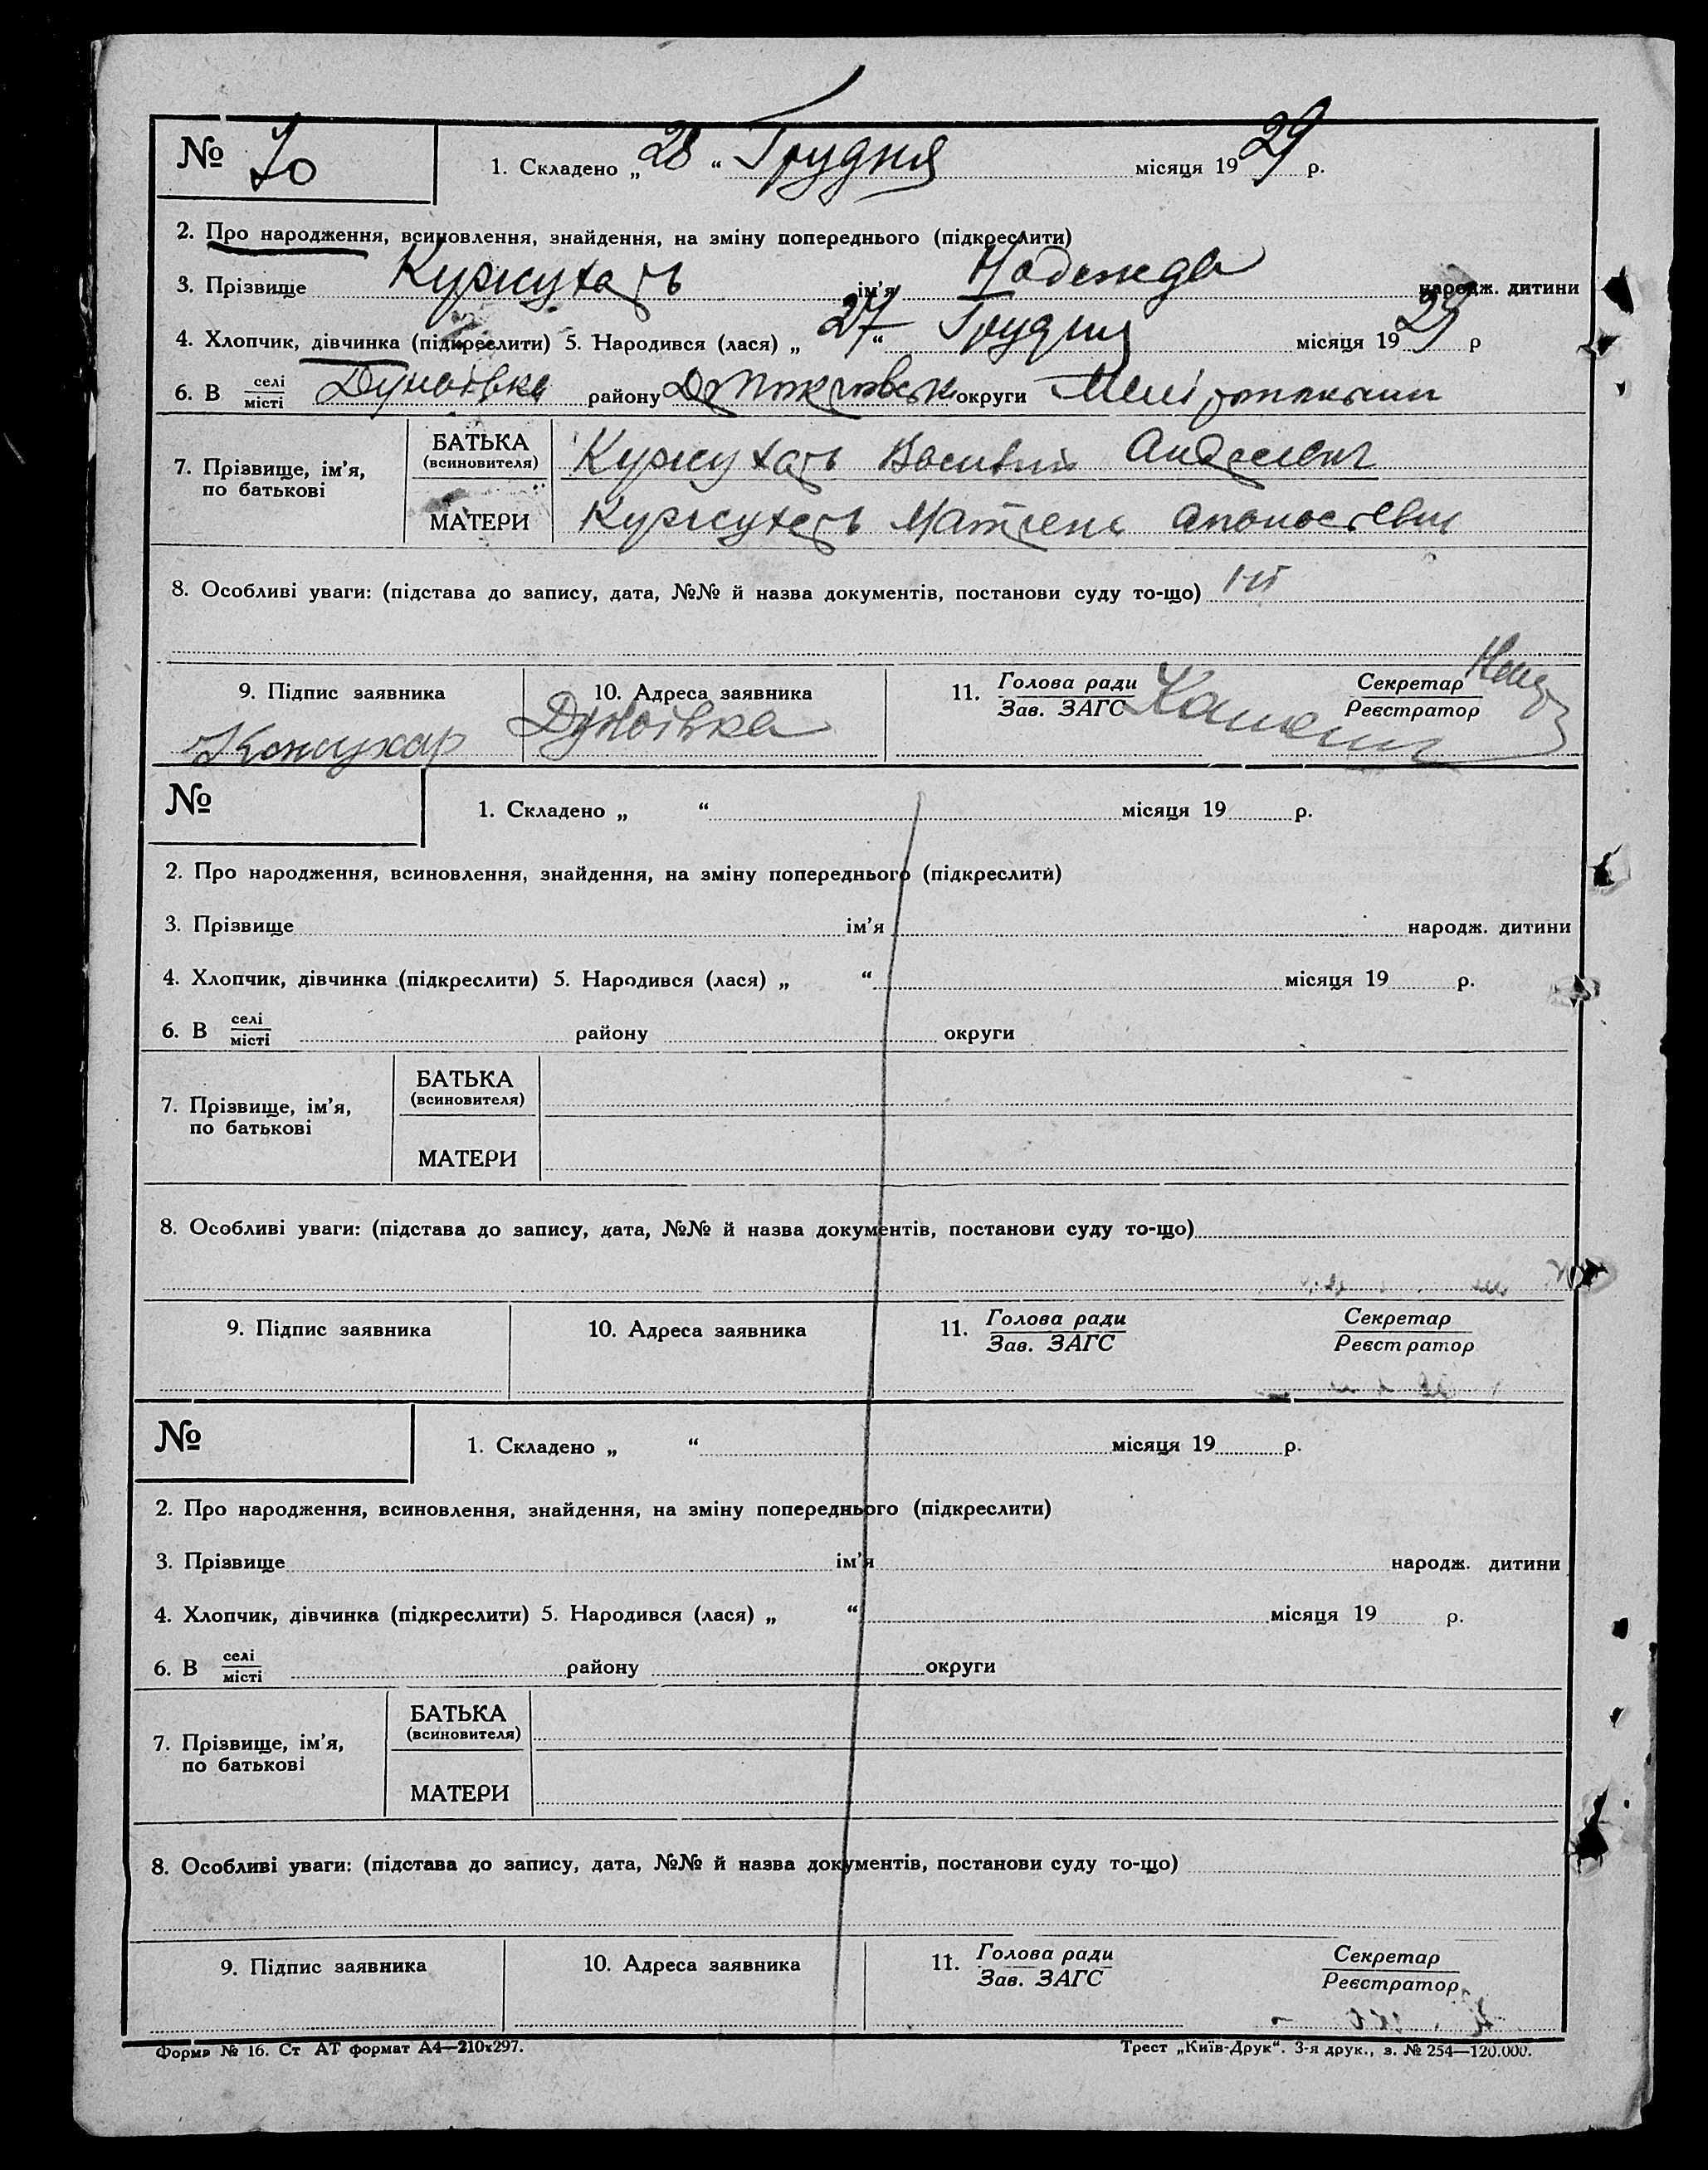 № 70
1. Складено „ 28 “ Грудня місяця 19 29 р.
2. Про народження, всиновлення, знайдення, на зміну попереднього (підкреслити)
3. Прізвище ім’я Надежда народж. дитини
4. Хлопчик, дівчинка (підкреслити) 5. Народився (лася) „ 27 “ Грудня місяця 19 29 р
6. В селі
місті Дунаївка району округи
7. Прізвище, ім’я,
по батькові
БАТЬКА
(всиновителя)
МАТЕРИ
8. Особливі уваги: (підстава до запису, дата, №№ й назва документів, постанови суду то-що)
9. Підпис заявника 10. Адреса заявника 11. Голова ради
Зав. ЗАГС
Секретар
Реєстратор
Дунаївка
№
1. Складено „ “ місяця 19 р.
2. Про народження, всиновлення, знайдення, на зміну попереднього (підкреслити)
3. Прізвище ім’я народж. дитини
4. Хлопчик, дівчинка (підкреслити) 5. Народився (лася) „ “ місяця 19 р.
6. В селі
місті району округи
7. Прізвище, ім’я,
по батькові
БАТЬКА
(всиновителя)
МАТЕРИ
8. Особливі уваги: (підстава до запису, дата, №№ й назва документів, постанови суду то-що)
9. Підпис заявника 10. Адреса заявника 11. Голова ради
Зав. ЗАГС
Секретар
Реєстратор
№
1. Складено „ “ місяця 19 р.
2. Про народження, всиновлення, знайдення, на зміну попереднього (підкреслити)
3. Прізвище ім’я народж. дитини
4. Хлопчик, дівчинка (підкреслити) 5. Народився (лася) „ “ місяця 19 р.
6. В селі
місті району округи
7. Прізвище, ім’я,
по батькові
БАТЬКА
(всиновителя)
МАТЕРИ
8. Особливі уваги: (підстава до запису, дата, №№ й назва документів, постанови суду то-що)
9. Підпис заявника 10. Адреса заявника 11. Голова ради
Зав. ЗАГС
Секретар
Реєстратор
Форма № 16. Ст АТ формат А4—210х297. Трест „Київ-Друк“. 3-я друк., з. № 254—120.000.